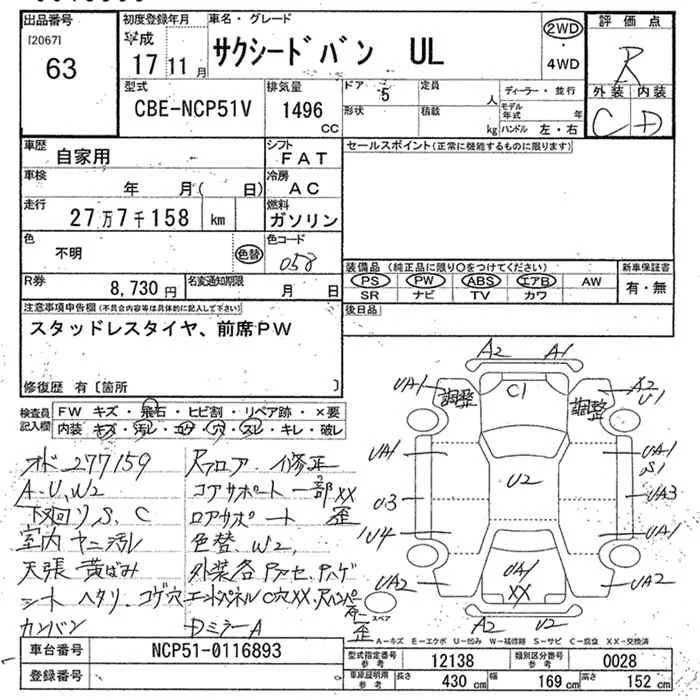 出品番号
[2067]
63
初度登録年月
平成
17年11月
車名・グレード
サクシードバン UL
2WD
・
4WD
評価点
R
外装 内装
C D
型式
CBE-NCP51V
排気量
1496
CC
ドア 5
形状
定員
人
積載
kg
ディーラー・並行
モデル年式 年
ハンドル 左・右
車歴
自家用
シフト
FAT
車検
年 月( 日)
冷房
AC
走行
27万7千158 km
燃料
ガソリン
色
不明
色替
色コード
058
R券
8,730円
名変通知期限
月 日
セールスポイント(正常に機能するものに限ります)
装備品(純正品に限り○をつけてください)
PS PW ABS エアB AW
SR ナビ TV カワ
新車保証書
有・無
後日品
注意事項申告欄(不具合内容等は具体的に記入して下さい)
スタッドレスタイヤ、前席PW
修復歴 有〔箇所 〕
検査員
記入欄
FW キズ・飛石・ヒビ割・リペア跡・×要
内装・キズ・汚レ・コゲ・穴・スレ・キレ・破レ
オド277159
A・U、W2
下廻りS、C
室内 ヤニ汚レ
天張 黄ばみ
シート ヘタリ、コゲ穴
カンバン
Rフロア・修正
コアサポート一部XX
ロアサポート 歪
色替、W2、
外装各
エンドパネルC穴XX
歪
DミラーA
A2 A1
UA1 調整 C1 調整 A2
U1
UA1 UA1
S1
U3 U2 UA3
U4 UA1
UA2 UA1 UA2
XX
スペア
A2 U2
A－キズ E－エクボ U－凹み W－補修跡 S－サビ C－腐食 XX－交換済
車台番号
NCP51-0116893
登録番号
型式指定番号
参考
12138
類別区分番号
参考
0028
車検証
参考
長さ 430 cm
幅 169 cm
高さ 152 cm